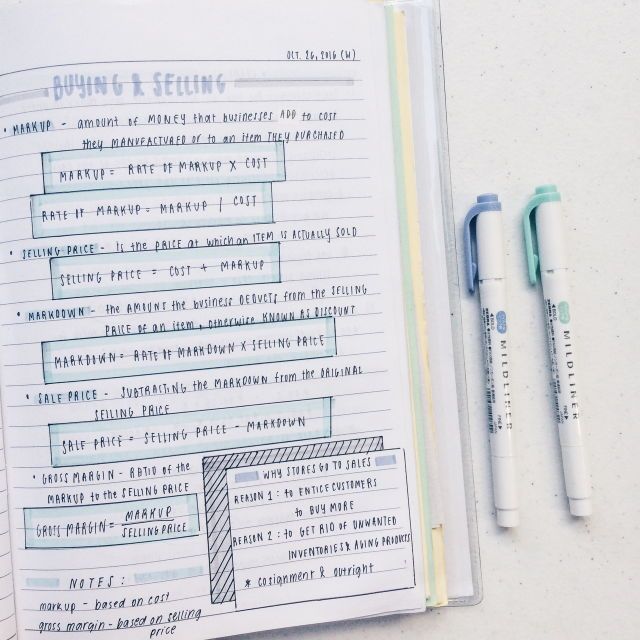 OCT. 26, 2016 (W)
BUYING & SELLING
• MARKUP - amount of MONEY that businesses ADD to cost
they MANUFACTURED or to an item THEY PURCHASED
MARKUP = RATE OF MARKUP X COST
RATE OF MARKUP = MARKUP / COST
• SELLING PRICE - Is the PRICE at which an ITEM IS ACTUALLY SOLD
SELLING PRICE = COST + MARKUP
• MARKDOWN - the AMOUNt the business DEDUCTS from the SELLING
PRICE of an item, otherwise KNOWN AS DISCOUNT
MARKDOWN = RATE OF MARKDOWN X SELLING PRICE
• SALE PRICE - SUBTRACTING the MARKDOWN from the ORIGINAL
SELLING PRICE
SALE PRICE = SELLING PRICE - MARKDOWN
• GROSS MARGIN - RATIO of the
MARKUP to the SELLING PRICE
GROSS MARGIN = MARKUP
SELLING PRICE
WHY STORES GO TO SALES
REASON 1 : to ENTICE CUSTOMERS
to BUY MORE
REASON 2 : to GET RID OF UNWANTED
INVENTORIES & AGING PRODUCTS
* cosignment & outright
NOTES :
markup - based on cost
gross margin - based on selling
price
MILDLINER
MILDLINER